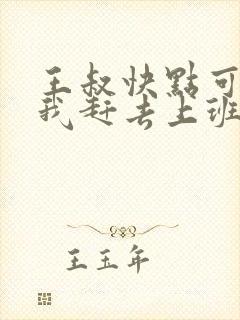 王叔快點可
我赶去上班
王玉年